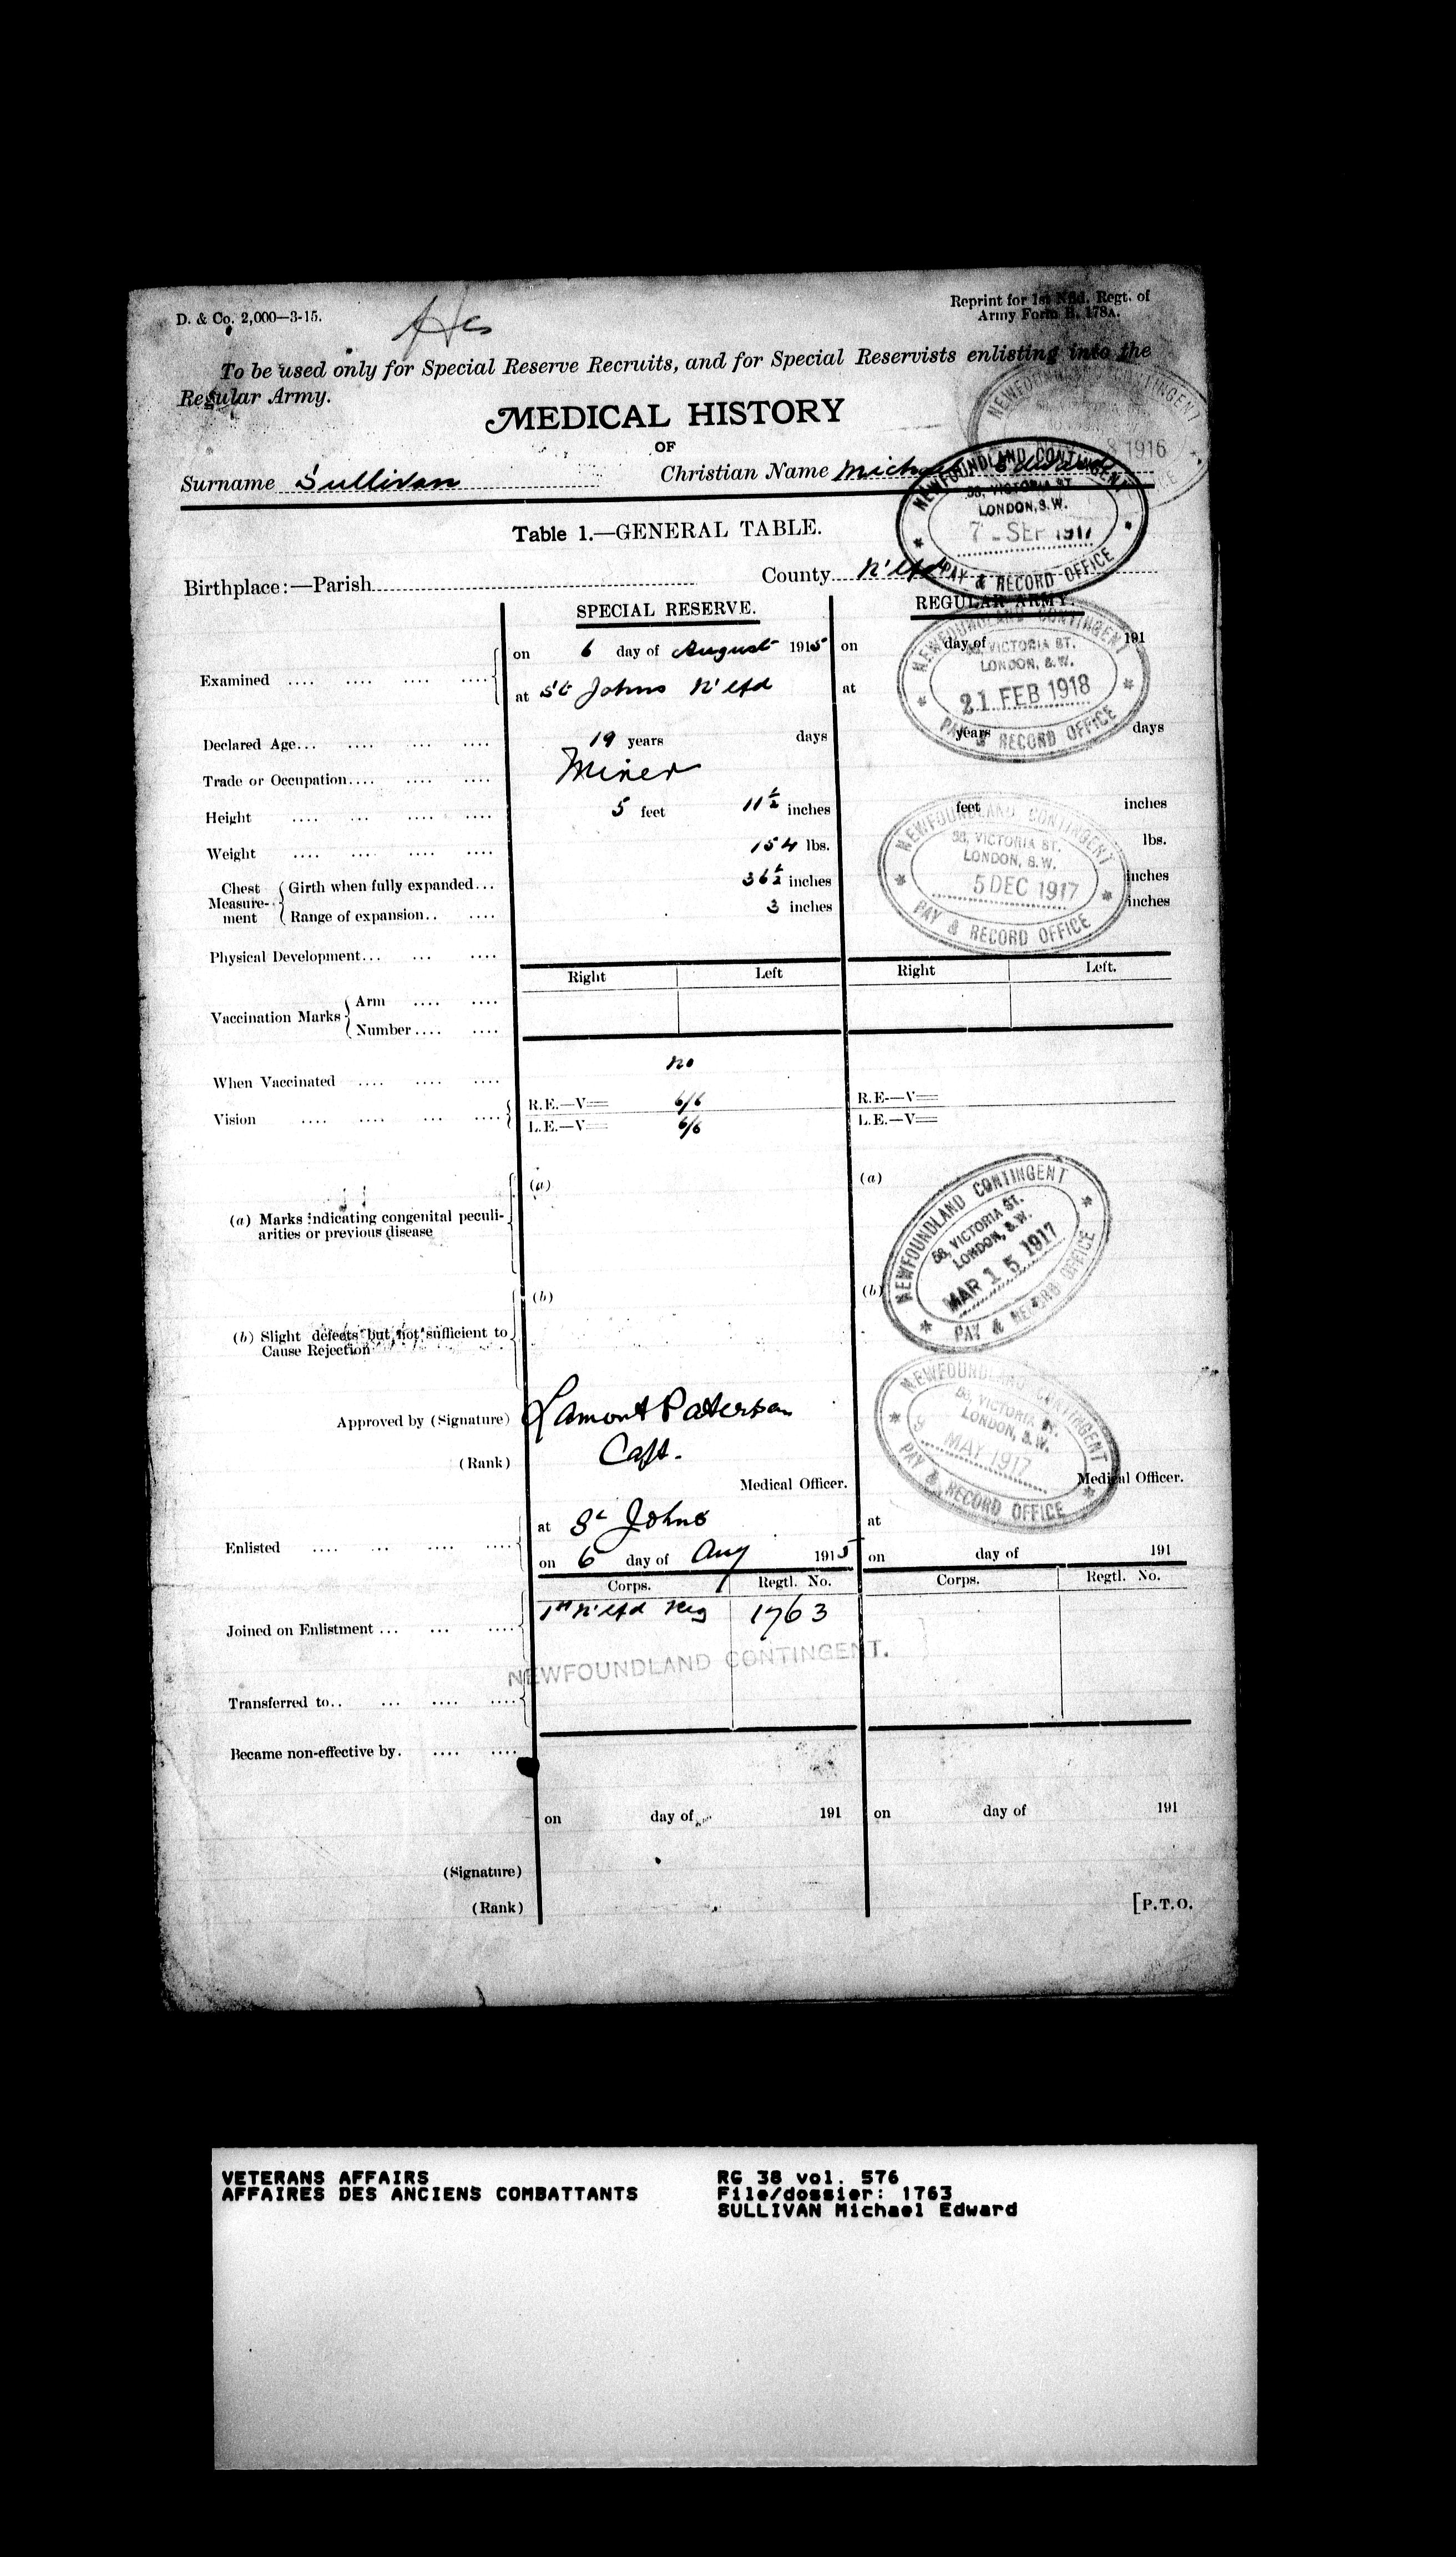 D. & Co. 2,000—3-15.
Reprint for 1st Nfld. Regt. of
Army Form B. 178A.
To be used only for Special Reserve Recruits, and for Special Reservists enlisting into the
Regular Army.
MEDICAL HISTORY
OF
Surname Sullivan Christian Name Michael Edward
NEWFOUNDLAND CONTINGENT
8 1916
NEWFOUNDLAND CONTINGENT
58, VICTORIA ST.
LONDON, S.W.
7 - SEP 1917
PAY & RECORD OFFICE
Table 1.—GENERAL TABLE.
Birthplace:—Parish County N'lfd
SPECIAL RESERVE. REGULAR ARMY.
Examined .... .... .... .... on 6 day of August 1915 on day of 191
at St Johns N'lfd at
NEWFOUNDLAND CONTINGENT
58, VICTORIA ST.
LONDON, S.W.
21 FEB 1918
PAY & RECORD OFFICE
Declared Age... .... .... .... 19 years days years days
Trade or Occupation.... .... .... Miner
Height .... ... .... .... 5 feet 11½ inches feet inches
Weight .... .... .... .... 154 lbs. lbs.
Chest Measure-ment Girth when fully expanded... 36½ inches inches
Range of expansion.. .... 3 inches inches
NEWFOUNDLAND CONTINGENT
58, VICTORIA ST.
LONDON, S.W.
5 DEC 1917
PAY & RECORD OFFICE
Physical Development... ... ....
Right Left Right Left.
Vaccination Marks Arm .... ....
Number.... ....
When Vaccinated .... .... .... no
Vision .... .... ... .... R.E.—V= 6/6 R.E-—V=
L.E.—V= 6/6 L.E.—V=
(a) (a)
(a) Marks indicating congenital peculi-
arities or previous disease
NEWFOUNDLAND CONTINGENT
58, VICTORIA ST.
LONDON, S.W.
MAR 15 1917
PAY & RECORD OFFICE
(b) (b)
(b) Slight defects but not sufficient to
Cause Rejection
NEWFOUNDLAND CONTINGENT
58, VICTORIA ST.
LONDON, S.W.
9 MAY 1917
PAY & RECORD OFFICE
Approved by (Signature) Lamont Paterson
(Rank) Capt.
Medical Officer. Medical Officer.
at St Johns at
Enlisted .... ... .... .... on 6 day of Aug 1915 on day of 191
Corps. Regtl. No. Corps. Regtl. No.
Joined on Enlistment ... ... .... 1st N'lfd Reg 1763
NEWFOUNDLAND CONTINGENT.
Transferred to.. ... .... ....
Became non-effective by. .... ....
on day of 191 on day of 191
(Signature)
(Rank)
[P.T.O.
VETERANS AFFAIRS
AFFAIRES DES ANCIENS COMBATTANTS
RG 38 vol. 576
File/dossier: 1763
SULLIVAN Michael Edward